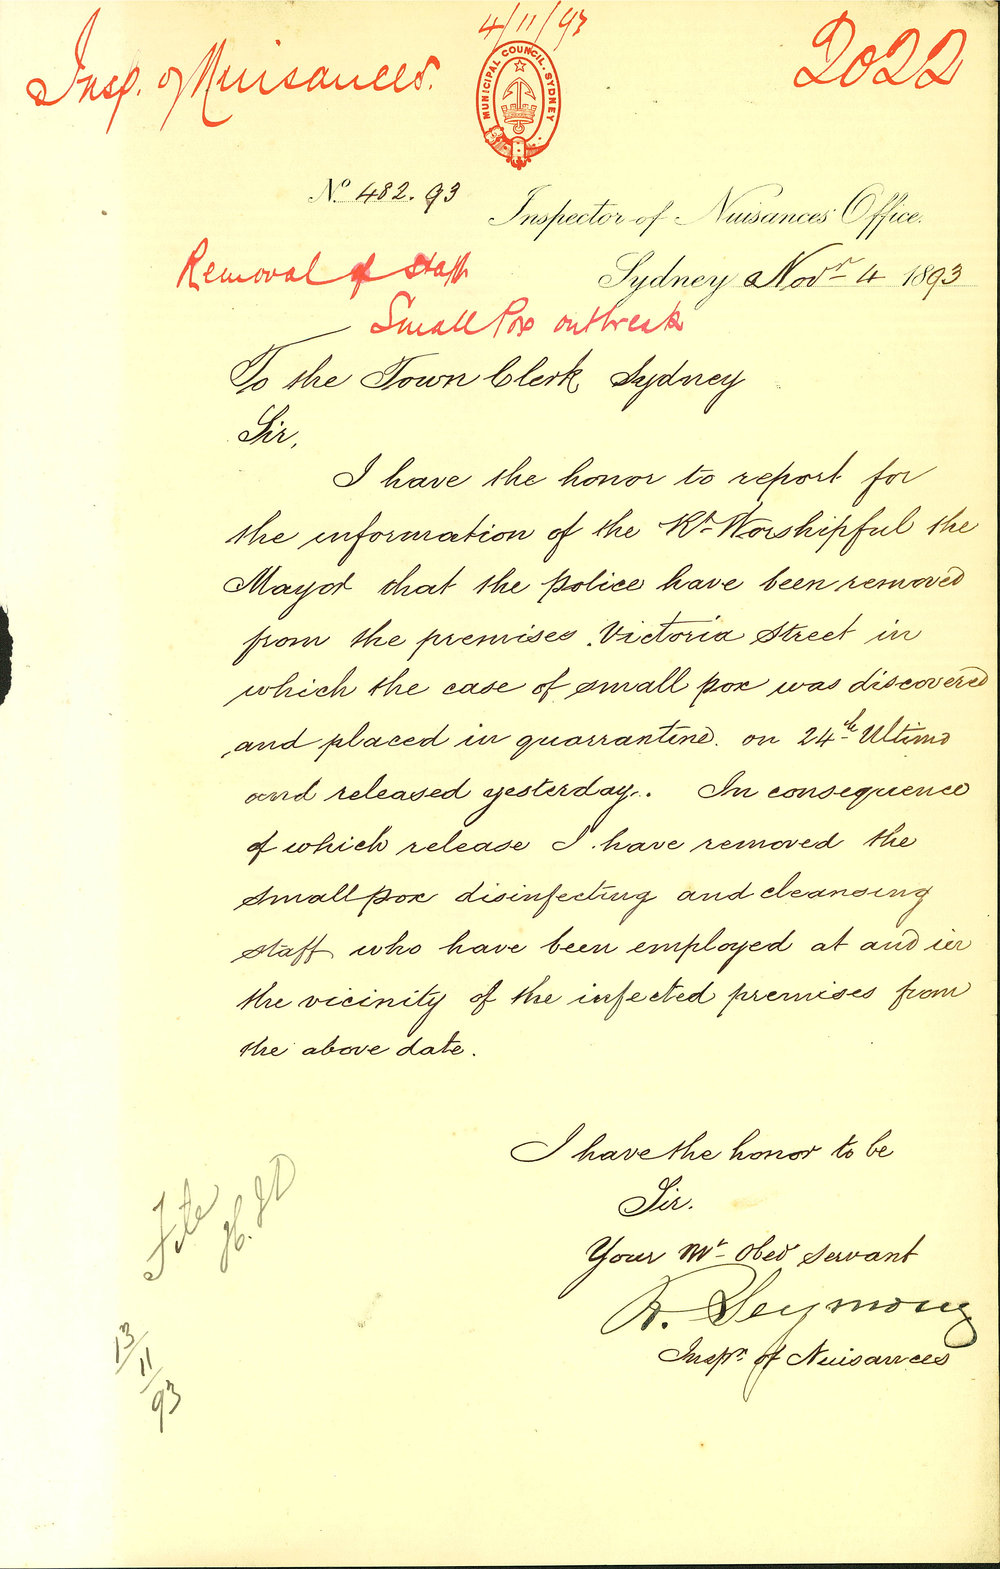 4/11/93
Insp. of Nuisances.
2022
MUNICIPAL COUNCIL. SYDNEY
No. 482.93
Inspector of Nuisances Office.
Removal of Staff
Sydney Novr 4 1893
Small Pox outbreak
To the Town Clerk Sydney
Sir,
I have the honor to report for
the information of the Rt Worshipful the
Mayor that the police have been removed
from the premises Victoria Street in
which the case of small pox was discovered
and placed in quarrantine. on 24th Ultimo
and released yesterday. In consequence
of which release I have removed the
small pox disinfecting and cleansing
staff who have been employed at and in
the vicinity of the infected premises from
the above date.
I have the honor to be
Sir.
Your Mt Obed servant
R. Seymour
Inspr. of Nuisances
File
H.J.D
13/11/93